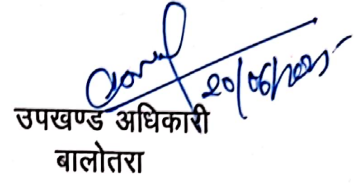 20/06/2025
उपखण्ड अधिकारी
बालोतरा